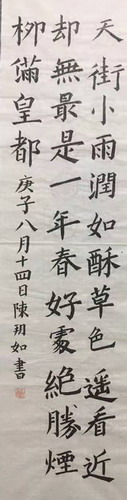 天街小雨潤如酥草色遥看近
却無最是一年春好處絶勝煙
柳滿皇都
庚子八月十四日陳玥如書